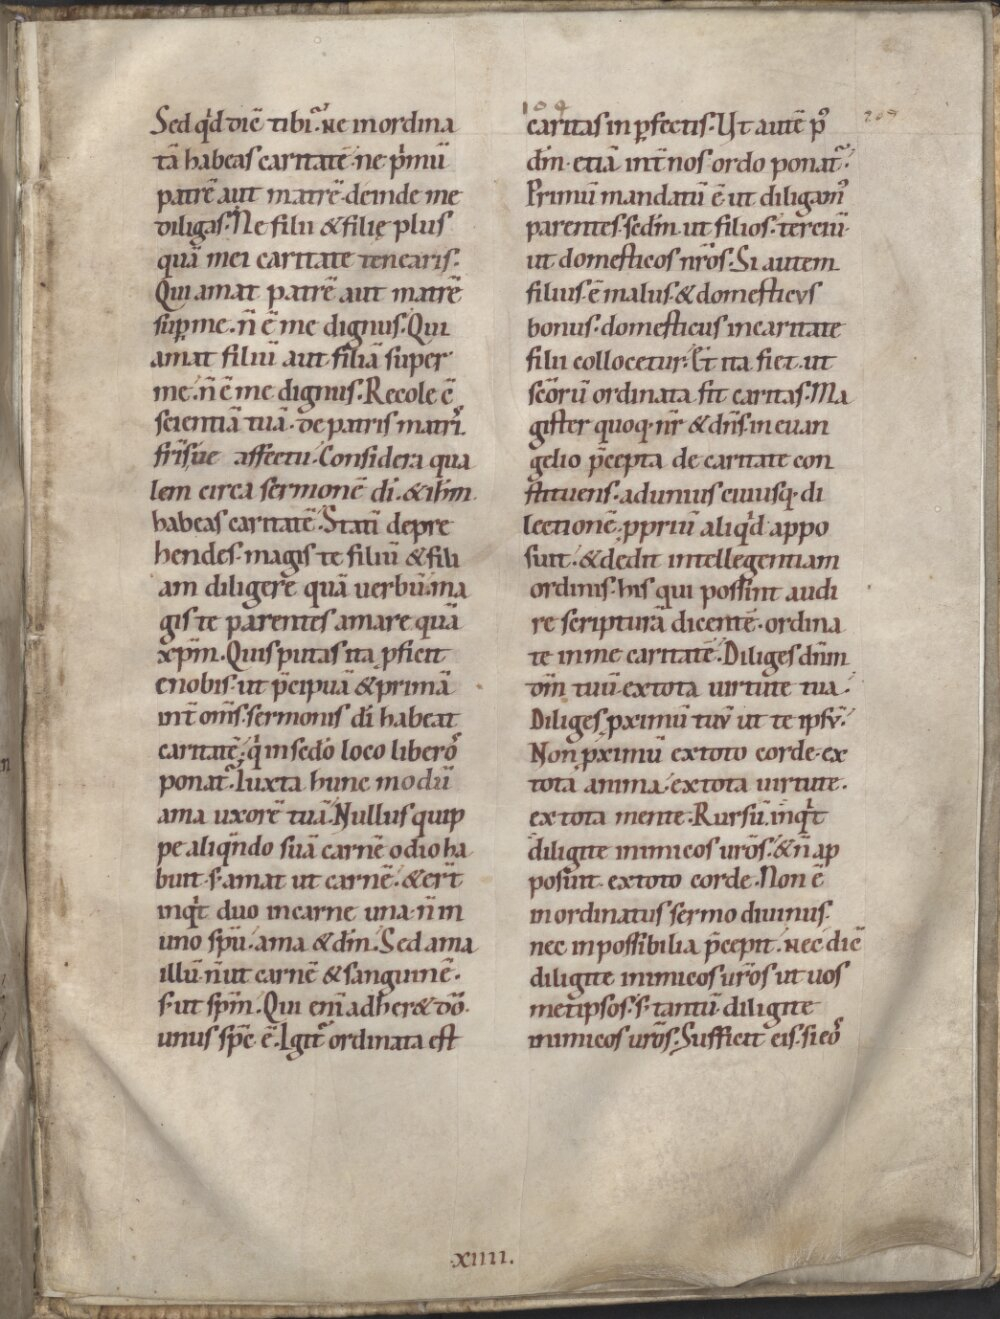 104
209
Sed qd diē tibi. ne inordina
tā habeas caritatē. ne pͥmū
patrē aut matrē. deinde me
diligas. Ne filii & filię plus
quā mei caritate tenearis.
Qui amat patrē aut matrē
suꝑ me. n̄ ē me dignus. Qui
amat filiū aut filiā super
me. n̄ ē me dignus. Recole ē
scientiā tuā. de patris matrͥ
fr̄is ue affectu. Considera qua
lem circa sermonē dī. & ihm̄
habeas caritatē. Statī depre
hendes. magis te filiū & fili
am diligere quā uerbū. ma
gis te parentes amare quā
xpm̄. Quis putas ita ꝓficit
e nobis. ut p̄cipuā & primā
int̄ om̄s. sermonis dī habeat
caritatē. qͥ in sc̄do loco liberoꝰ
ponat᷑. Iuxta hunc modū
ama uxorē tuā. Nullus quip
pe aliqn̄do suā carnē odio ha
buit. s. amat ut carnē. & er̄t
inqͥt duo in carne una. n̄ in
uno spū. ama & dm̄. Sed ama
illū. n̄ ut carnē & sanguinē.
s. ut spm̄. Qui enī adher& dō.
unus spc̄ ē. Igit᷑ ordinata est
caritas in ꝑfectis. Ut autē pꝰ
dm̄. etiā int̄ nos ordo ponat᷑.
Primū mandatū ē ut diligamꝰ
parentes. sedm̄. ut filios. terciū.
ut domesticos nr̄os. Si autem
filius. ē malus. & domesticus
bonus. domesticus in caritate
filii collocetur. Et ita fiet. ut
sc̄orū ordinata fit caritas. Ma
gister quoq. nr̄ & dn̄s. in euan
gelio p̄cepta de caritate con
stituens. ad unius cuiusq. di
lectionē. ꝓpriū aliqͥd appo
suit. & dedit intellegentiam
ordinis. his qui possint audi
re scripturā dicentē. ordina
te in me caritatē. Diliges dnm̄
dm̄ tuū. ex tota uirtute tua.
Diliges ꝓximū tuū ut te ipsū.
Non ꝓximū ex toto corde. ex
tota anima. ex tota uirtute.
ex tota mente. Rursū. inqͥt
diligite inimicos ur̄os. & n̄ ap
posuit. ex toto corde. Non ē
inordinatus sermo diuinus.
nec inpossibilia p̄cepit. nec diē
diligite inimicos ur̄os ut uos
metipsos. s. tantū. diligite
inimicos ur̄os. Sufficit eis. si eoꝰ
.xiiii.